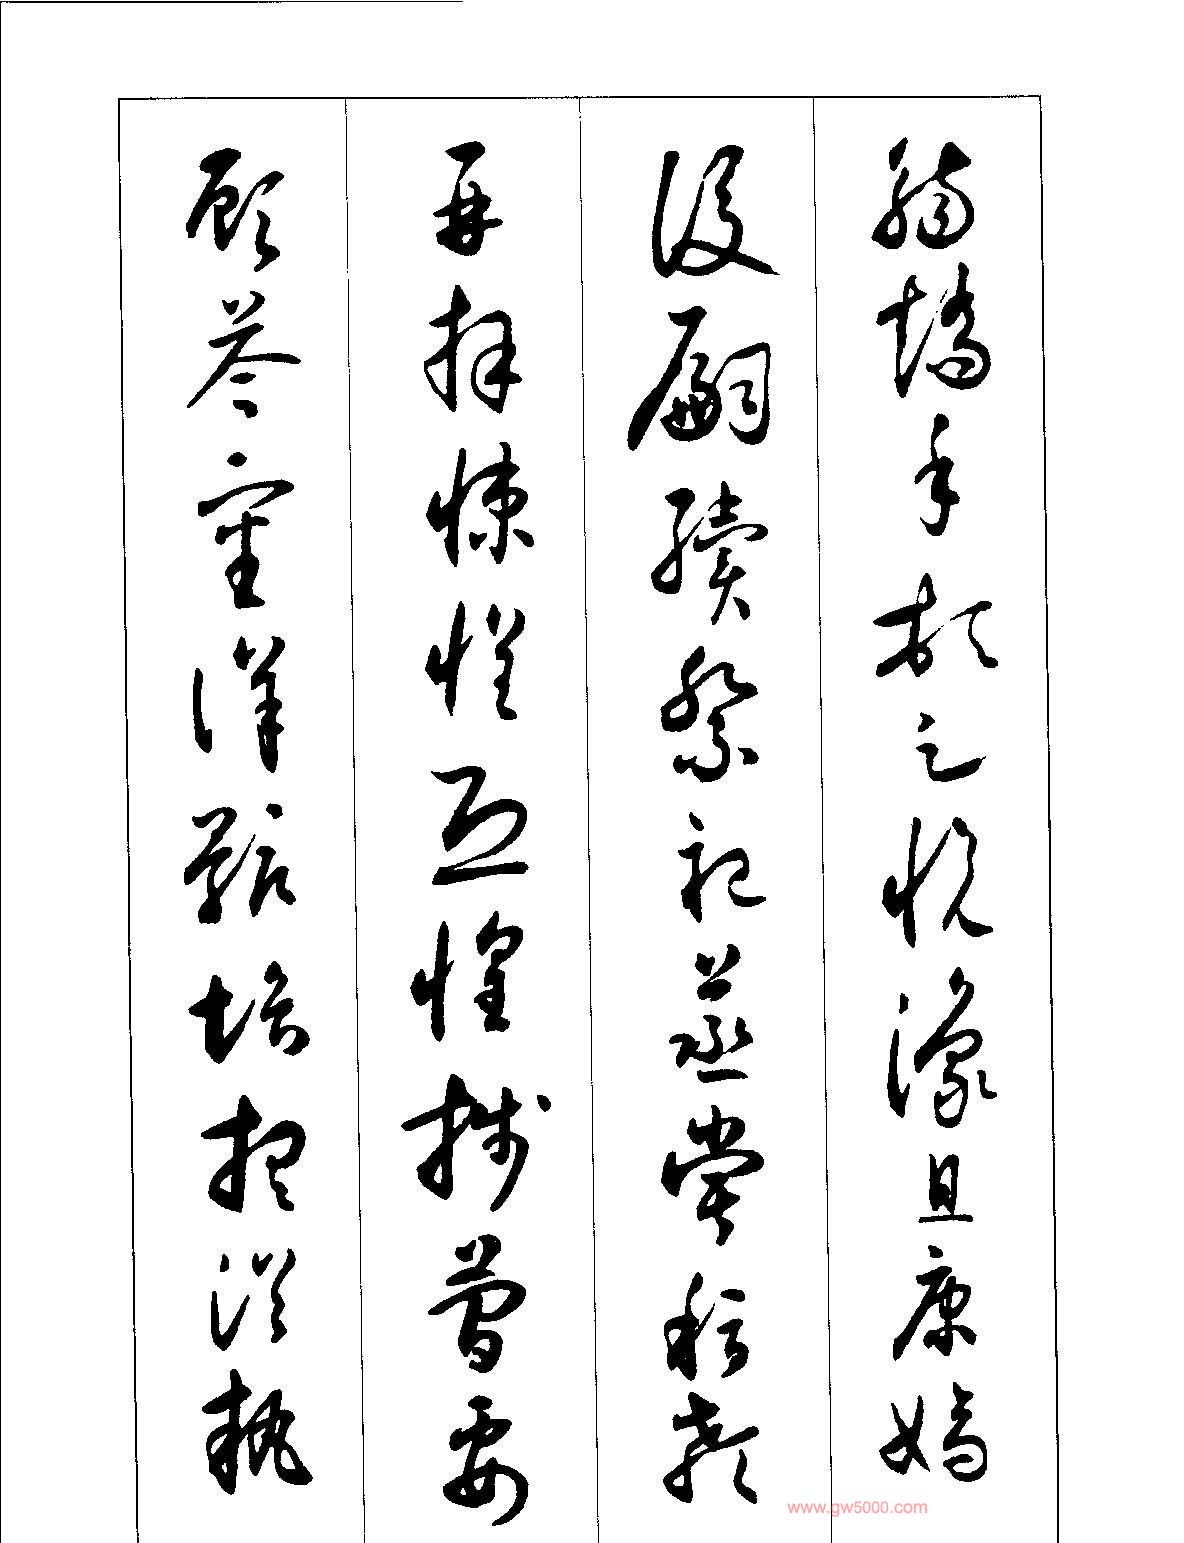 觴矯手頓足悅豫且康嫡
後嗣續祭祀蒸嘗稽顙
再拜悚懼恐惶牋簡要
顧答審詳骸垢想浴執
www.gw5000.com